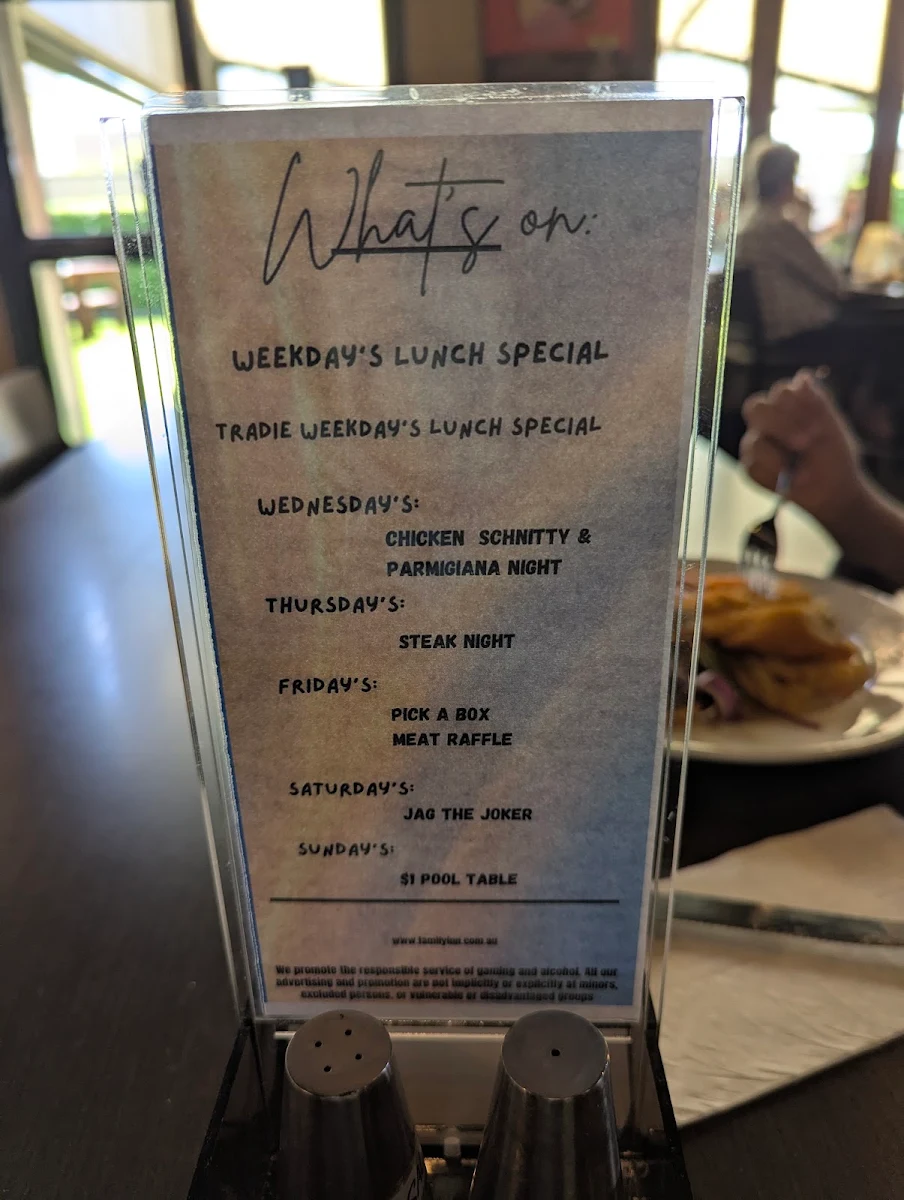 What's on:
WEEKDAY'S LUNCH SPECIAL
TRADIE WEEKDAY'S LUNCH SPECIAL
WEDNESDAY'S:
CHICKEN SCHNITTY &
PARMIGIANA NIGHT
THURSDAY'S:
STEAK NIGHT
FRIDAY'S:
PICK A BOX
MEAT RAFFLE
SATURDAY'S:
JAG THE JOKER
SUNDAY'S:
$1 POOL TABLE
www.familyinn.com.au
We promote the responsible service of gaming and alcohol. All our
advertising and promotion are not implicitly or explicitly at minors,
excluded persons, or vulnerable or disadvantaged groups